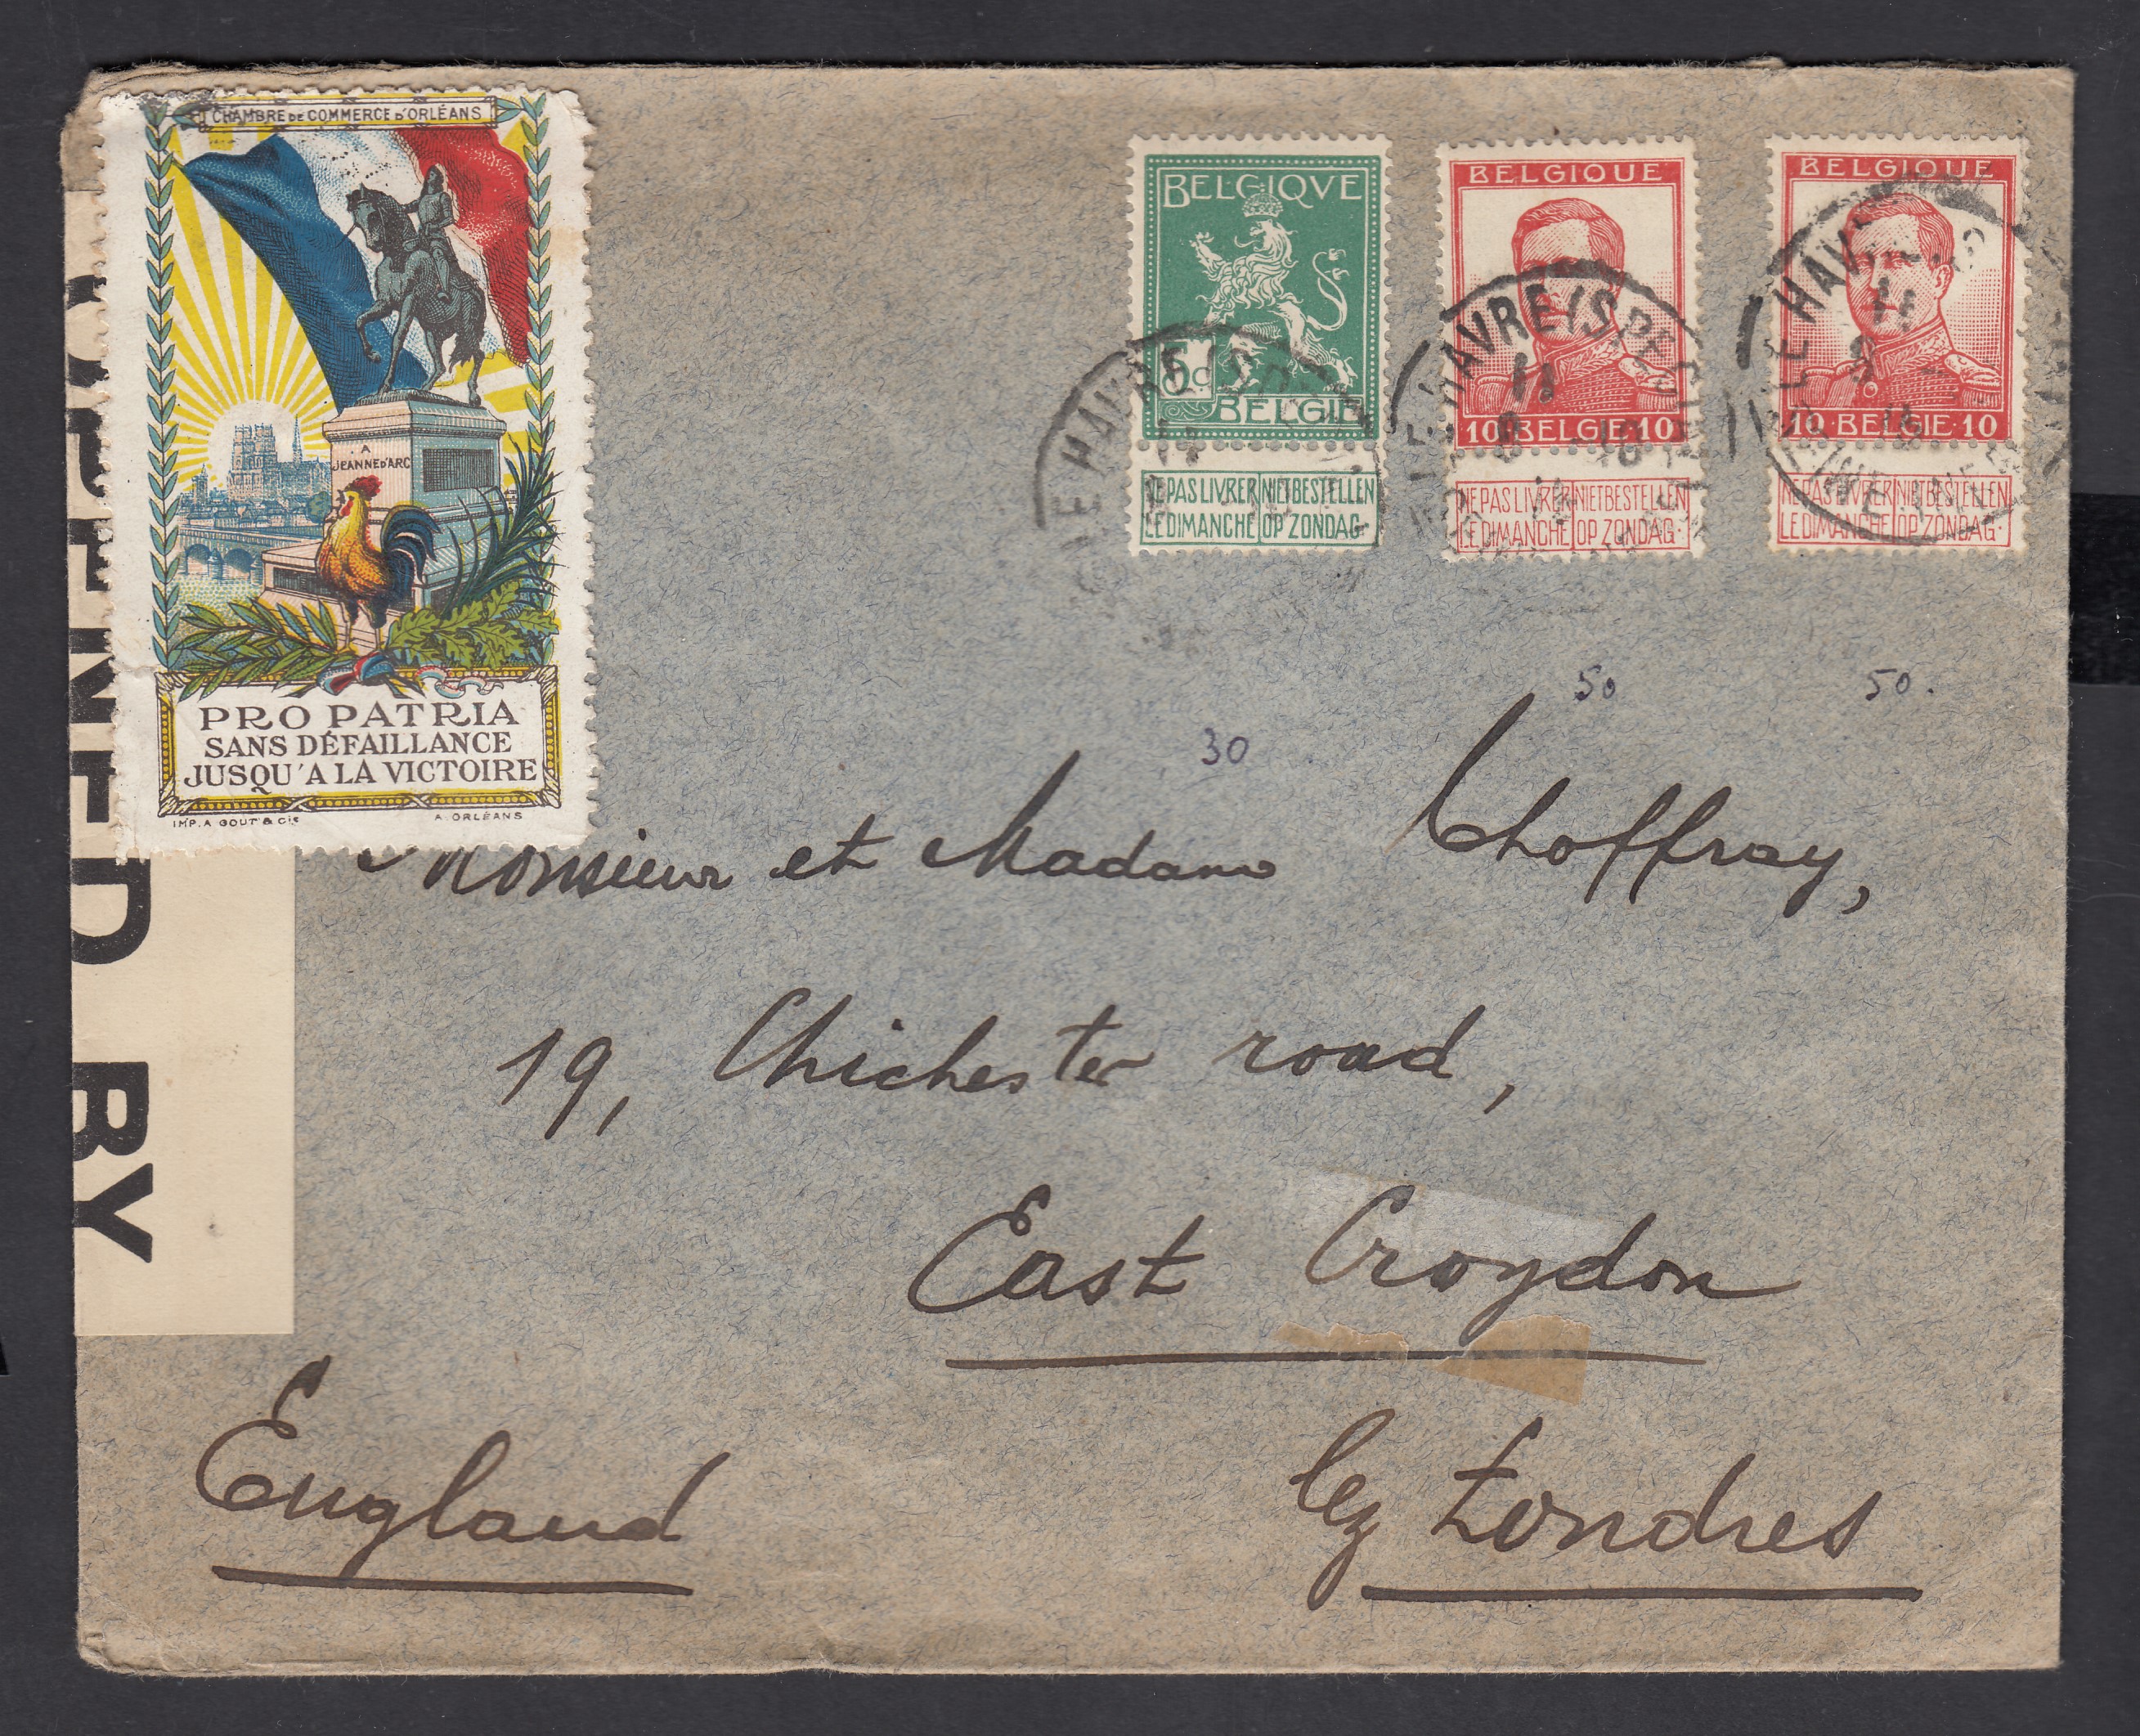 CHAMBRE DE COMMERCE D'ORLÉANS
A
JEANNE D'ARC
PRO PATRIA
SANS DÉFAILLANCE
JUSQU'A LA VICTOIRE
IMP. A GOUT & Cie
A ORLÉANS
OPENED BY
BELGIQVE
5c
BELGIE
NE PAS LIVRER NIET BESTELLEN
LE DIMANCHE OP ZONDAG
BELGIQUE
10 BELGIE 10
NE PAS LIVRER NIET BESTELLEN
LE DIMANCHE OP ZONDAG
BELGIQUE
10 BELGIE 10
NE PAS LIVRER NIET BESTELLEN
LE DIMANCHE OP ZONDAG
LE HAVRE (SPEC
11
LE HAVRE (SPEC
11
LE HAVRE
11
30
50
50.
Monsieur et Madame Choffray,
19, Chichester road,
East Croydon
lez Londres
England